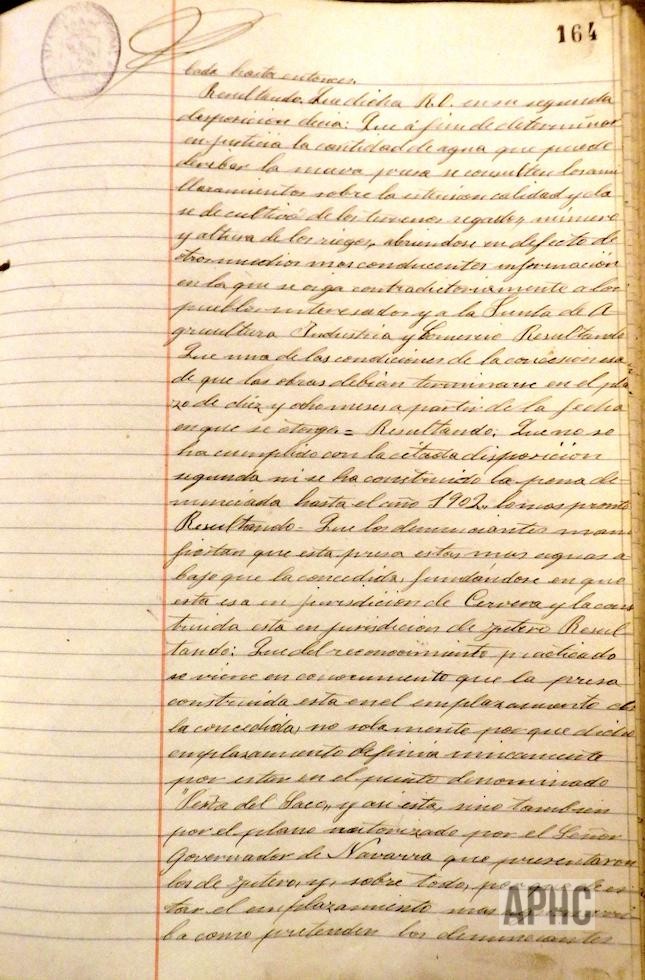 164
bada hasta entonces.
Resultando. Que dicha R.O. en su segunda
disposicion decia: Que á fin de determinar
en justicia la cantidad de agua que puede
deribar la nueva presa se consulten los ami
llaramientos sobre la estension calidad y cla
se de cultivo de los terrenos regados, número
y altura de los riegos, abriendose en defecto de
otros medios mas conducentes información
en la que se oiga contradictoriamente a los
pueblos interesados y a la Junta de A
gricultura Industria y Comercio Resultando
Que una de las condiciones de la concesion era
de que las obras debian terminarse en el pla
zo de diez y ocho meses a partir de la fecha
en que se otorga = Resultando: Que no se
ha cumplido con la citada disposición
segunda ni se ha construido la presa de
nunciada hasta el año 1902, lo mas pronto
Resultando - Que los denunciantes mani
fiestan que esta presa esta, mas aguas a
bajo que la concedida, fundándose en que
esta esa en jurisdicion de Cervera y la cons
truida esta en jurisdicion de Yutero Resul
tando: Que del reconocimiento practicado
se viene en conocimiento que la presa
construida esta en el emplazamiento de
la concedida, no solamente por que dicho
emplazamiento definia unicamente
por estar en el punto denominado
"Peña del Saco,, y asi esta, sino tambien
por el plano autorizado por el Señor
Governador de Navarra que presentaron
los de Yutero, y, sobre todo, por que de es
tar el emplazamiento mas arri
ba como pretenden los denunciantes
APHC